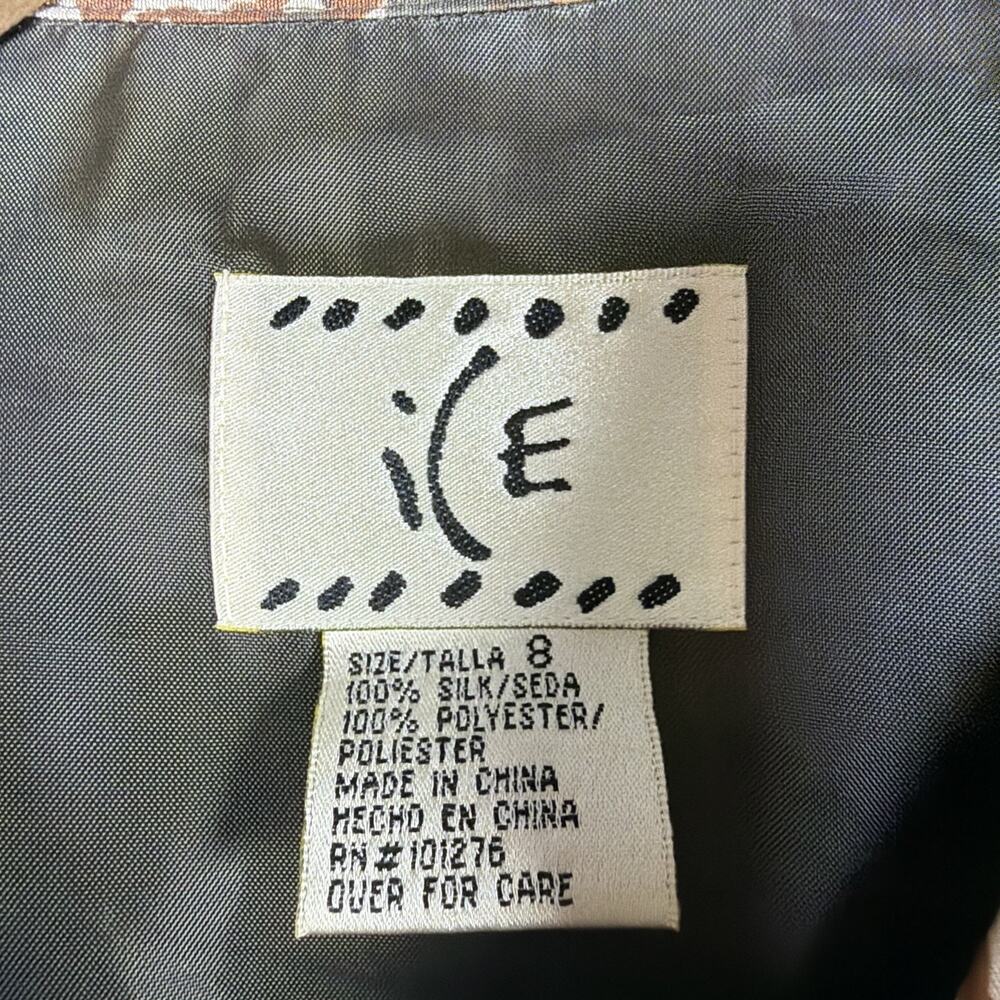 iCE
SIZE/TALLA 8
100% SILK/SEDA
100% POLYESTER/
POLIESTER
MADE IN CHINA
HECHO EN CHINA
RN#101276
OVER FOR CARE